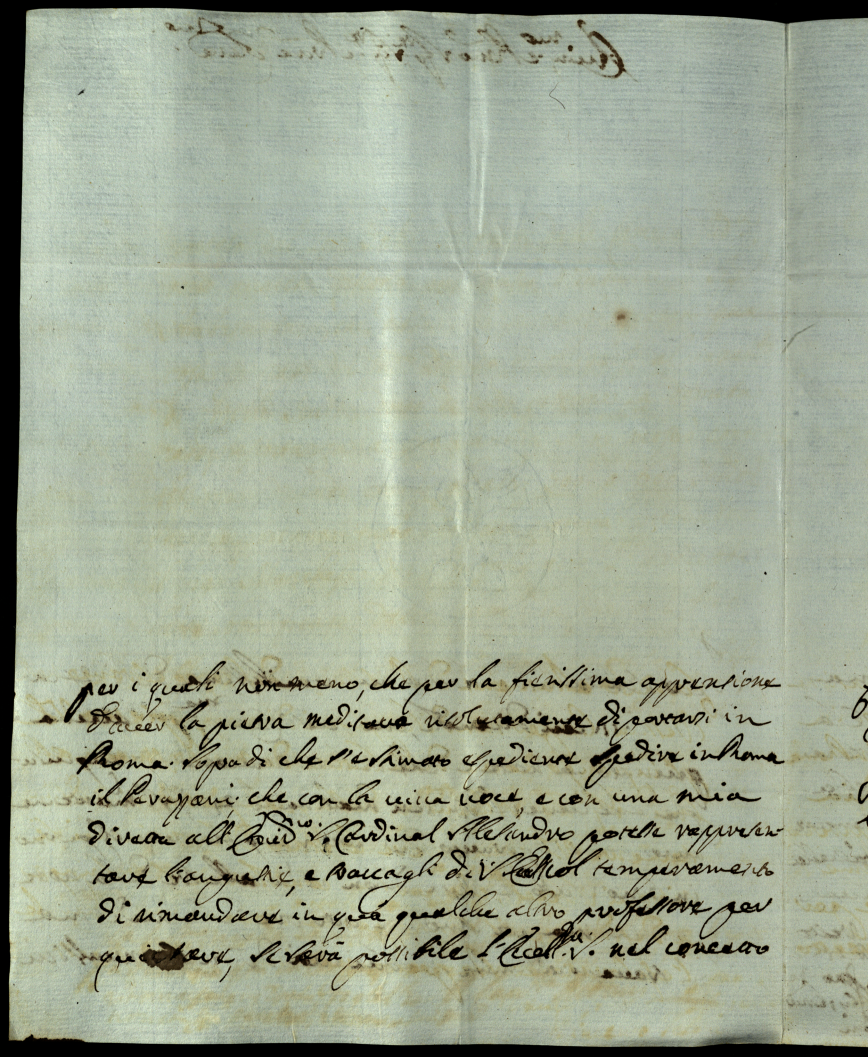 per i quali non meno, che per la fierissima apprensione
d'aver la pietra meditava risolutamente di portarsi in
Roma. Sopra di che s'è stimato espediente spedire in Roma
il che con la viva voce, e con una mia
diretta all' Cardinal Alesandro potesse rappresen-
tare l'angustie, e di temperamento
di rimandare in quà qualche altro professore per
quietare, se sarà possibile l' S. nel concetto